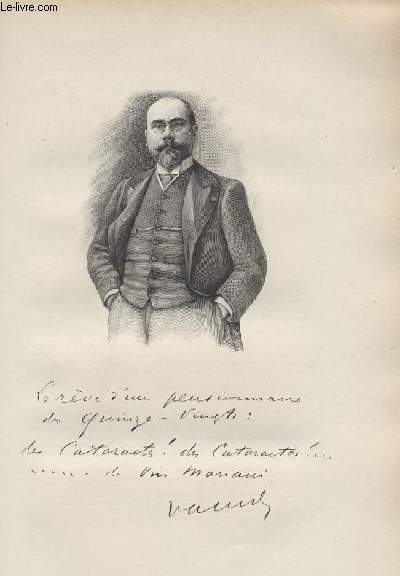 Le-livre.com
Le rêve d'un pensionnaire
des Quinze-Vingts :
des Cataractes ! des Cataractes !...
de Vin Mariani.